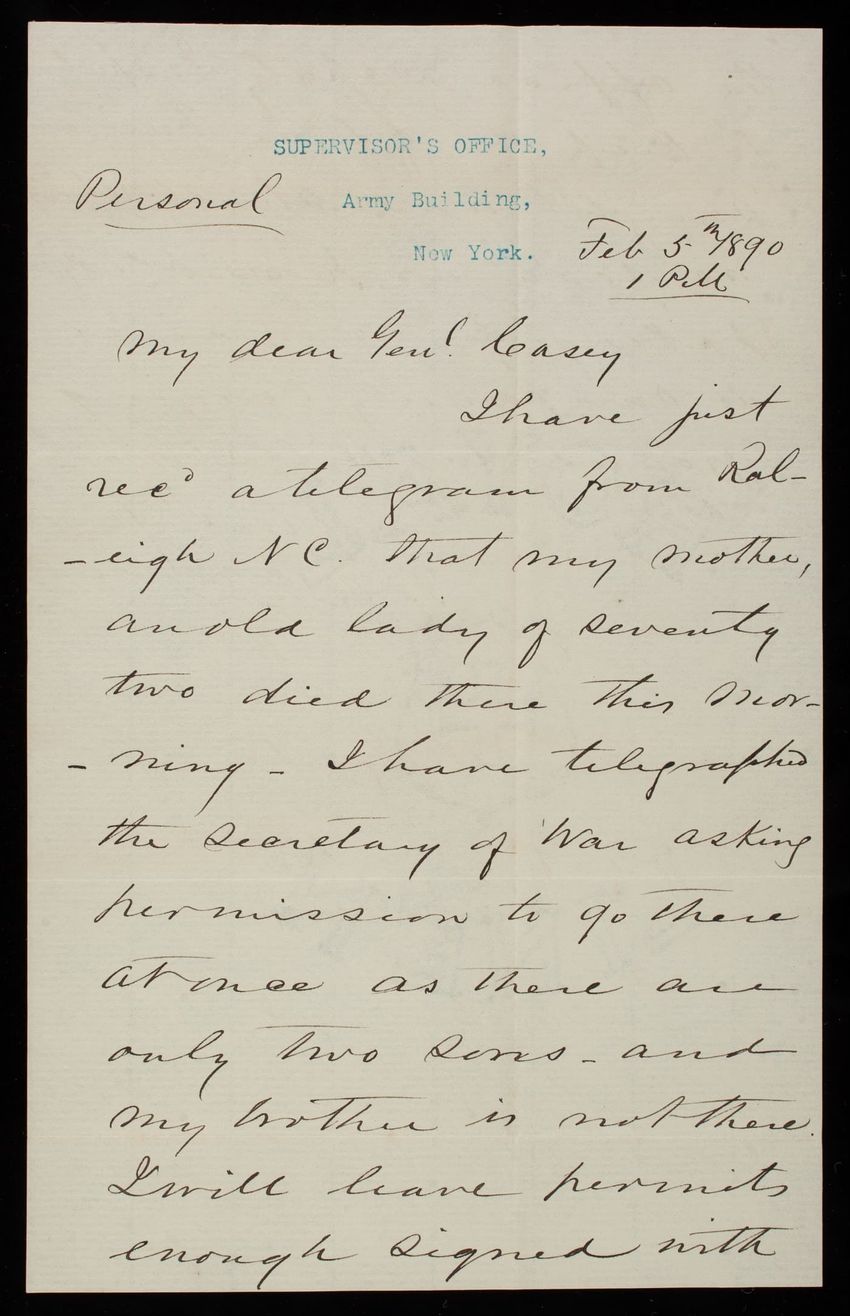 SUPERVISOR'S OFFICE,
Personal Army Building,
New York. Feb 5th/1890
1 P.M.
My dear Genl. Casey
I have just
recd a telegram from Ral-
-eigh N C. that my mother,
an old lady of seventy
two died there this mor-
- ning - I have telegraphed
the Secretary of War asking
permission to go there
at once as there are
only two sons - and
my brother is not there.
I will leave permits
enough signed with